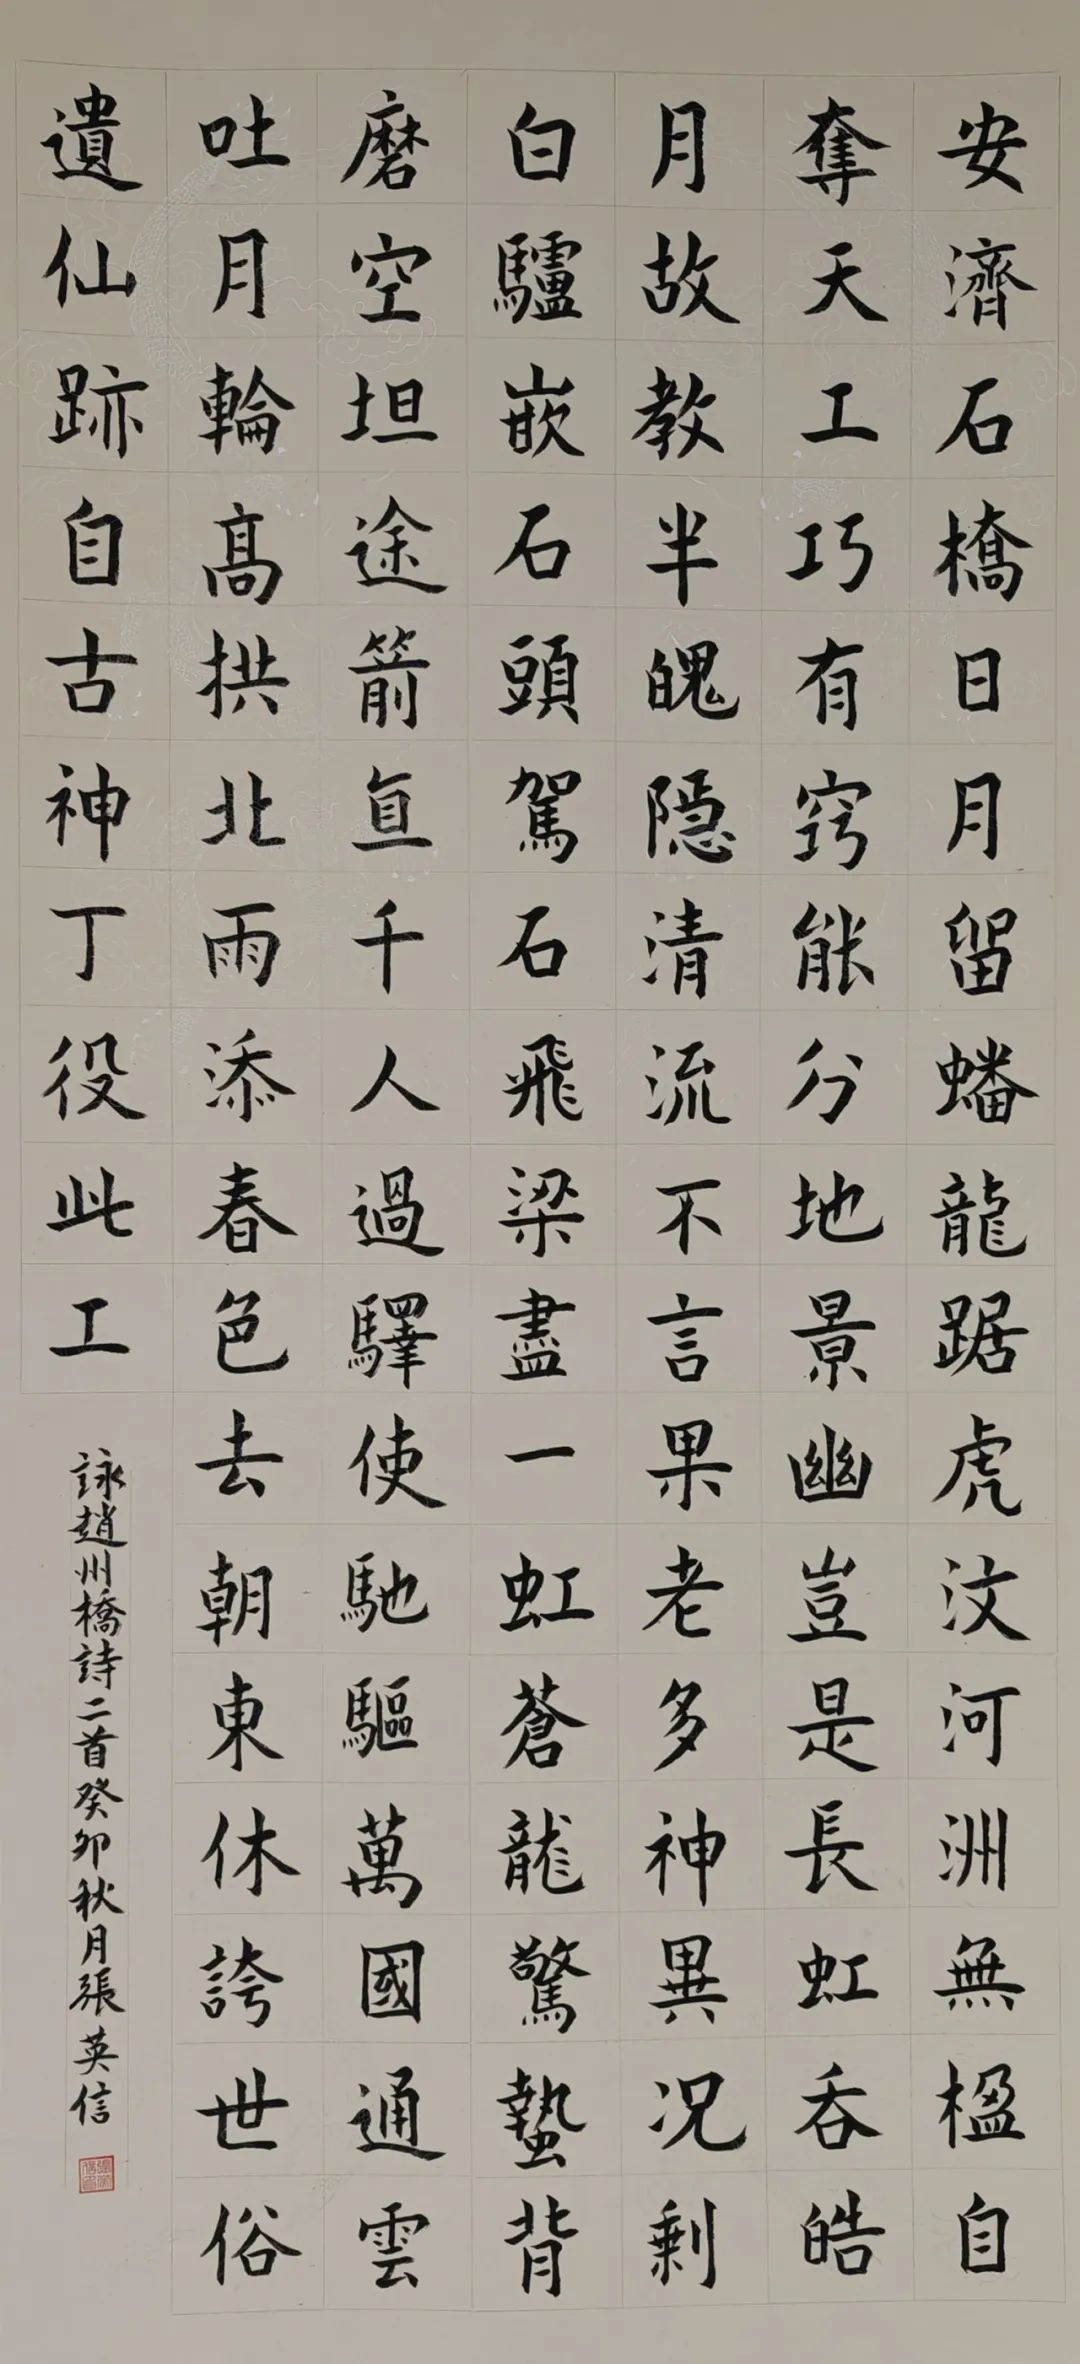 安濟石橋日月留蟠龍踞虎汶河洲無楹自
奪天工巧有窍能分地景幽豈是長虹吞皓
月故教半魄隐清流不言果老多神異况剩
白驢嵌石頭駕石飛梁盡一虹蒼龍驚蟄背
磨空坦途箭直千人過驛使馳驅萬國通雲
吐月輪高拱北雨添春色去朝東休誇世俗
遺仙跡自古神丁役此工
詠趙州橋詩二首癸卯秋月張英信